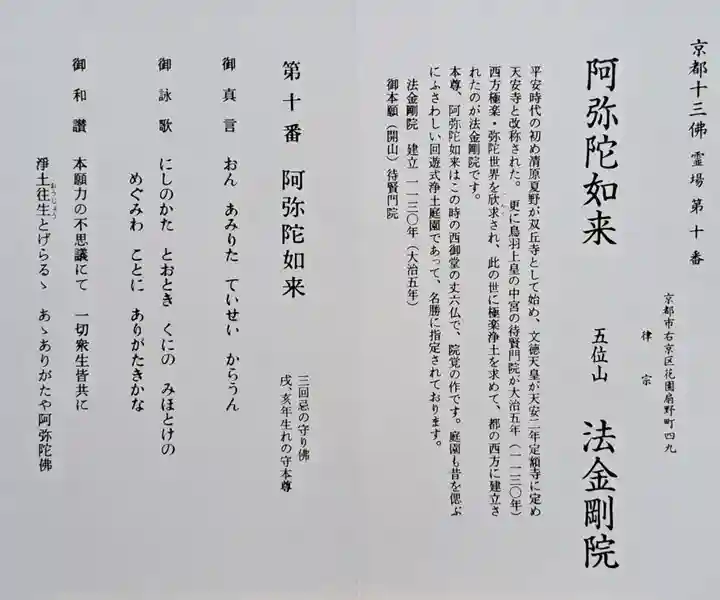 京都十三佛霊場第十番
京都市右京区花園扇野町四九
律宗
阿弥陀如来　五位山　法金剛院
平安時代の初め清原夏野が双丘寺として始め、文徳天皇が天安二年定額寺に定め
天安寺と改称された。更に鳥羽上皇の中宮の待賢門院が大治五年（一一三〇年）
西方極楽・弥陀世界を欣求され、此の世に極楽浄土を求めて、都の西方に建立さ
れたのが法金剛院です。
本尊、阿弥陀如来はこの時の西御堂の丈六仏で、院覚の作です。庭園も昔を偲ぶ
にふさわしい回遊式浄土庭園であって、名勝に指定されております。
法金剛院　建立　一一三〇年（大治五年）
御本願（開山）待賢門院
第十番　阿弥陀如来
三回忌の守り佛
戌、亥年生れの守本尊
御真言　おん　あみりた　ていせい　からうん
御詠歌　にしのかた　とおとき　くにの　みほとけの
めぐみわ　ことに　ありがたきかな
御和讃　本願力の不思議にて　一切衆生皆共に
浄土往生とげらるゝ　あゝありがたや阿弥陀佛
おうじょう